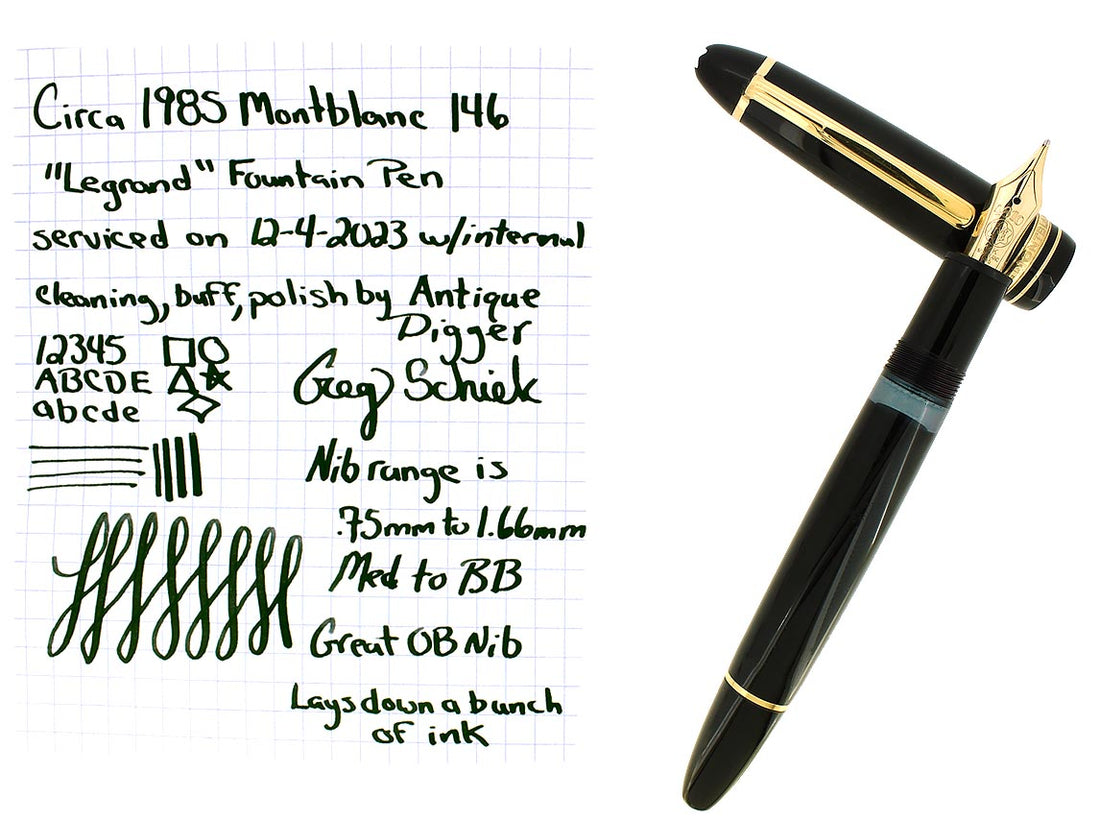 Circa 1985 Montblanc 146
"Legrand" Fountain Pen
serviced on 12-4-2023 w/internal
cleaning, buff, polish by Antique
Digger
12345
ABCDE
abcde
Greg Schiek
Nib range is
.75mm to 1.66mm
Med to BB
Great OB Nib
Lays down a bunch
of ink